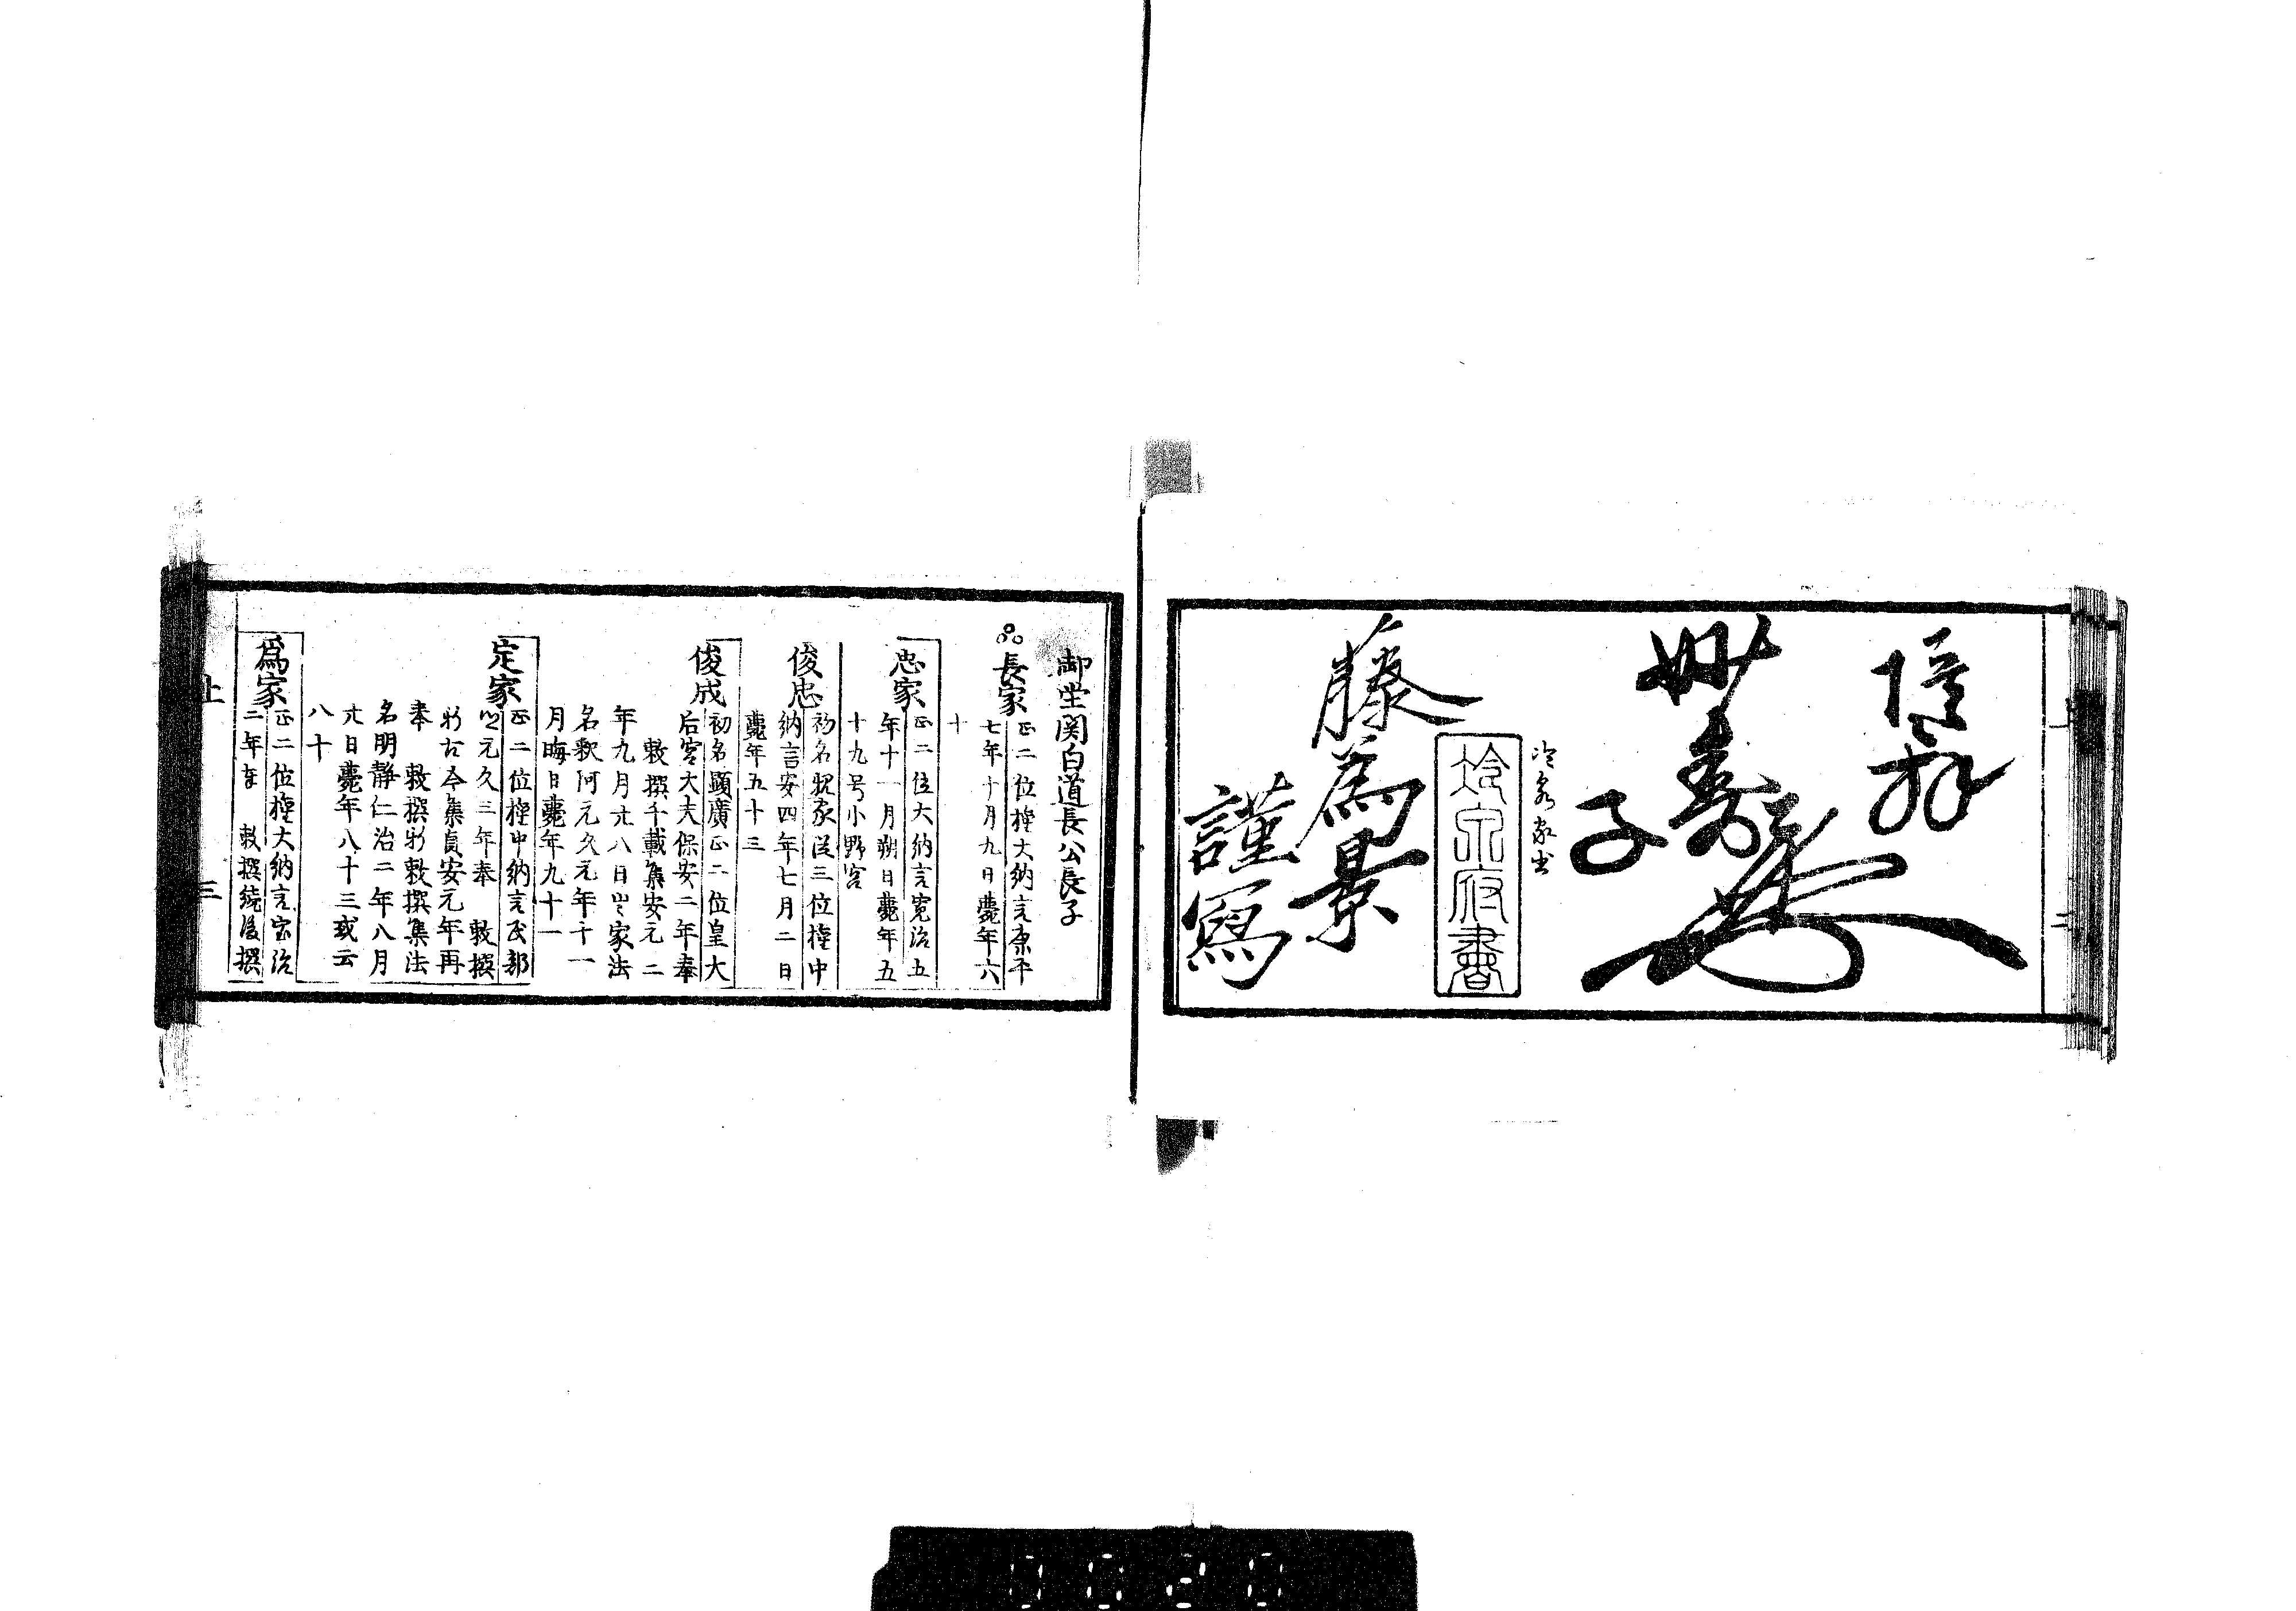 妙壽
子
冷泉家書
冷泉府書
藤為景
謹寫
御堂関白道長公長子
長家
正二位権大納言康平
七年十月九日薨年六
十
忠家
正二位大納言寛治五
年十一月朔日薨年五
十九号小野宮
俊忠
初名親家従三位権中
納言安四年七月二日
薨年五十三
俊成
初名顕廣正二位皇大
后宮大夫保安二年奉
敕撰千載集安元二
年九月廿八日出家法
名釈阿元久元年十一
月晦日薨年九十一
定家
正二位権中納言民部
元久三年奉 敕撰
新古今集貞安元年再
奉 敕撰新敕撰集法
名明静仁治二年八月
廿日薨年八十三或云
八十
為家
正二位権大納言宝治
二年奉 敕撰続後撰
上
三
上
二